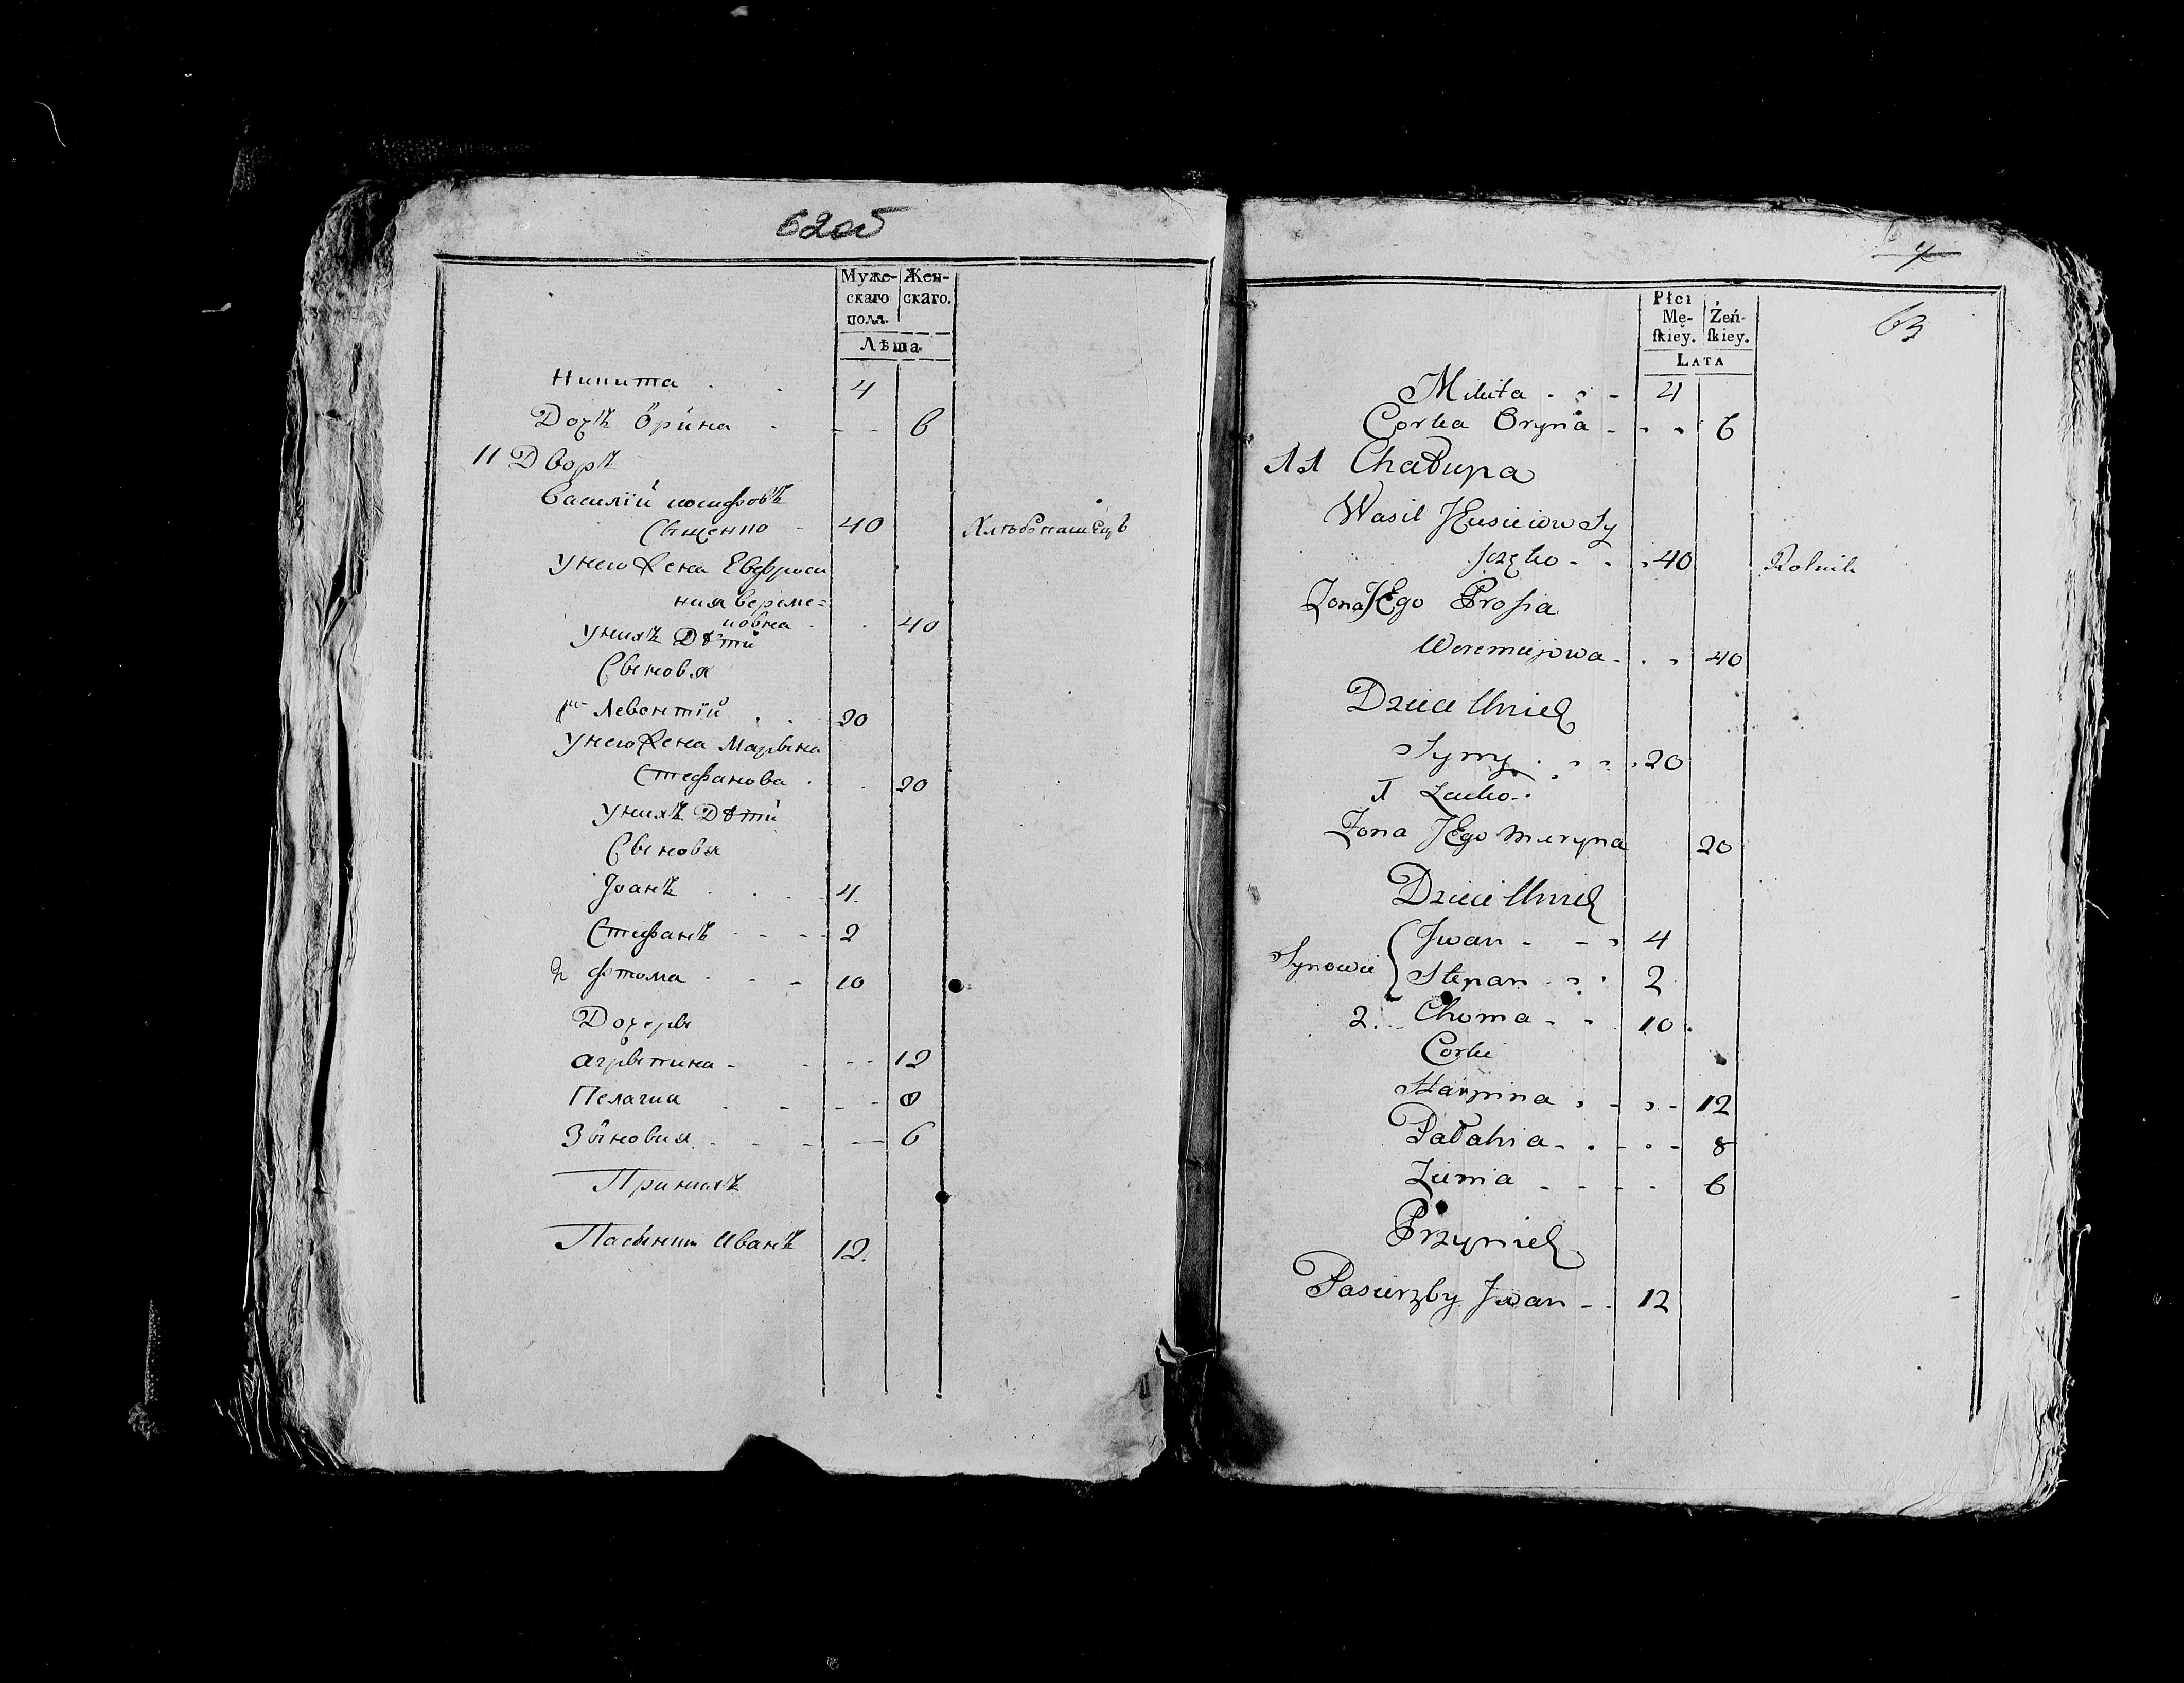 62об
Муже-
скаго
пола.
Жен-
скаго.
Лѣта
Никита 4
Дочъ Орина 6
11 Дворъ
Василій иосифовъ
Сыщенко 40 Хлѣбопашецъ
У него жена Евфроси
ния вереме=
иовна 40
У нихъ Дѣти
Сыновья
1й Левонтій 20
У него жена Марына
Стефанова 20
У нихъ Дѣти
Сыновья
Іоанъ 4
Стефанъ 2
2 Фтома 10
Дочеры
Агрыпина 12
Пелагия 8
Зѣновия 6
При нихъ
Пасынки Иванъ 12.
4
63
Płci
Mę-
skiey.
Żeń-
skiey.
LATA
Mikita 4
Corka Oryna 6
11 Chałupa
Wasil Sy
40 Rolnik
Zona JEgo Prosia
Weremiejowa 40
Dzieci Unich
Syny 20
1 Lewko
Zona JEgo Maryna 20
Dzieci Unich
Synowie Jwan 4
Stepan 2
2. Choma 10
Corki
Harpina 12
Pałahia 8
Zinia 6
Przynich
Pasierzby Jwan 12